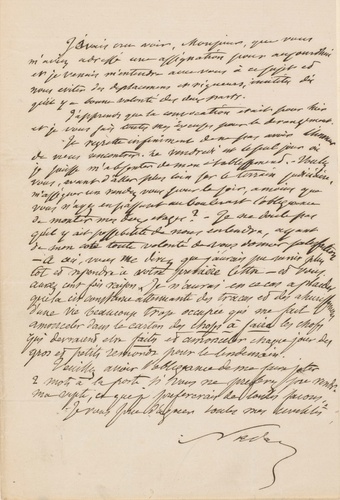 J'avais cru voir, Monsieur, que vous
m'aviez adressé une assignation pour aujourd'hui
et je venais m'entendre avec vous à ce sujet et
nous éviter des déplacements et rigueurs inutiles dès
qu'il y a bonne volonté des deux parts.
J'apprends que la convocation était pour hier
et je vous fais toutes mes excuses pour le dérangement.
Je regrette infiniment de n'pas avoir
de vous rencontrer. Le vendredi est le seul jour où
je puisse m'absenter de mon établissement. Voulez
vous, avant d'aller plus loin sur le terrain judiciaire,
m'assigner un rendez vous pour le soir, à moins que
vous n'ayez en passant au boulevard l'obligeance
de monter mes deux étages? - Je ne doute pas
qu'il y ait possibilité de nous entendre, ayant
de mon côté toute volonté de vous donner satisfaction
- À ça, vous me direz que j'aurais pu mieux plus
tôt et répondre à votre première lettre - et vous
aurez cent fois raison. Je n'aurai en ce cas à plaider
que la circonstance atténuante des tracas et des
d'une vie beaucoup trop occupée qui me fait
amonceler dans le carton des choses à faire les choses
qui devraient être faites et amonceler chaque jour des
gros et petits remords pour le lendemain.
Veuillez avoir l'obligeance de me faire jeter
2 mots à la poste si vous ne préférez pas
ma visite, ce que je préférerais de toutes façons.
Je vous prie d'agréer toutes mes civilités
Nadar